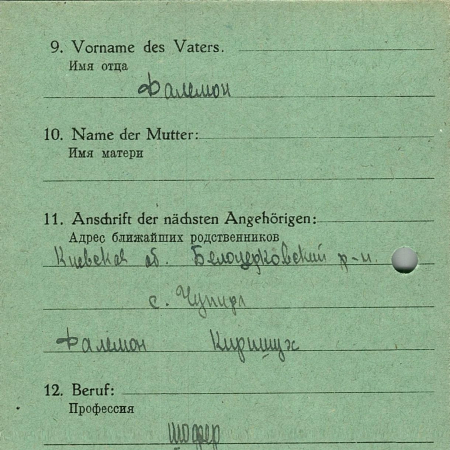 9. Vorname des Vaters.
Имя отца
Фалемон
10. Name der Mutter:
Имя матери
11. Anschrift der nächsten Angehörigen:
Адрес ближайших родственников
Киевская об. Белоцерковский р-н.
с. Чупира
Фалемон
12. Beruf:
Профессия
шофер